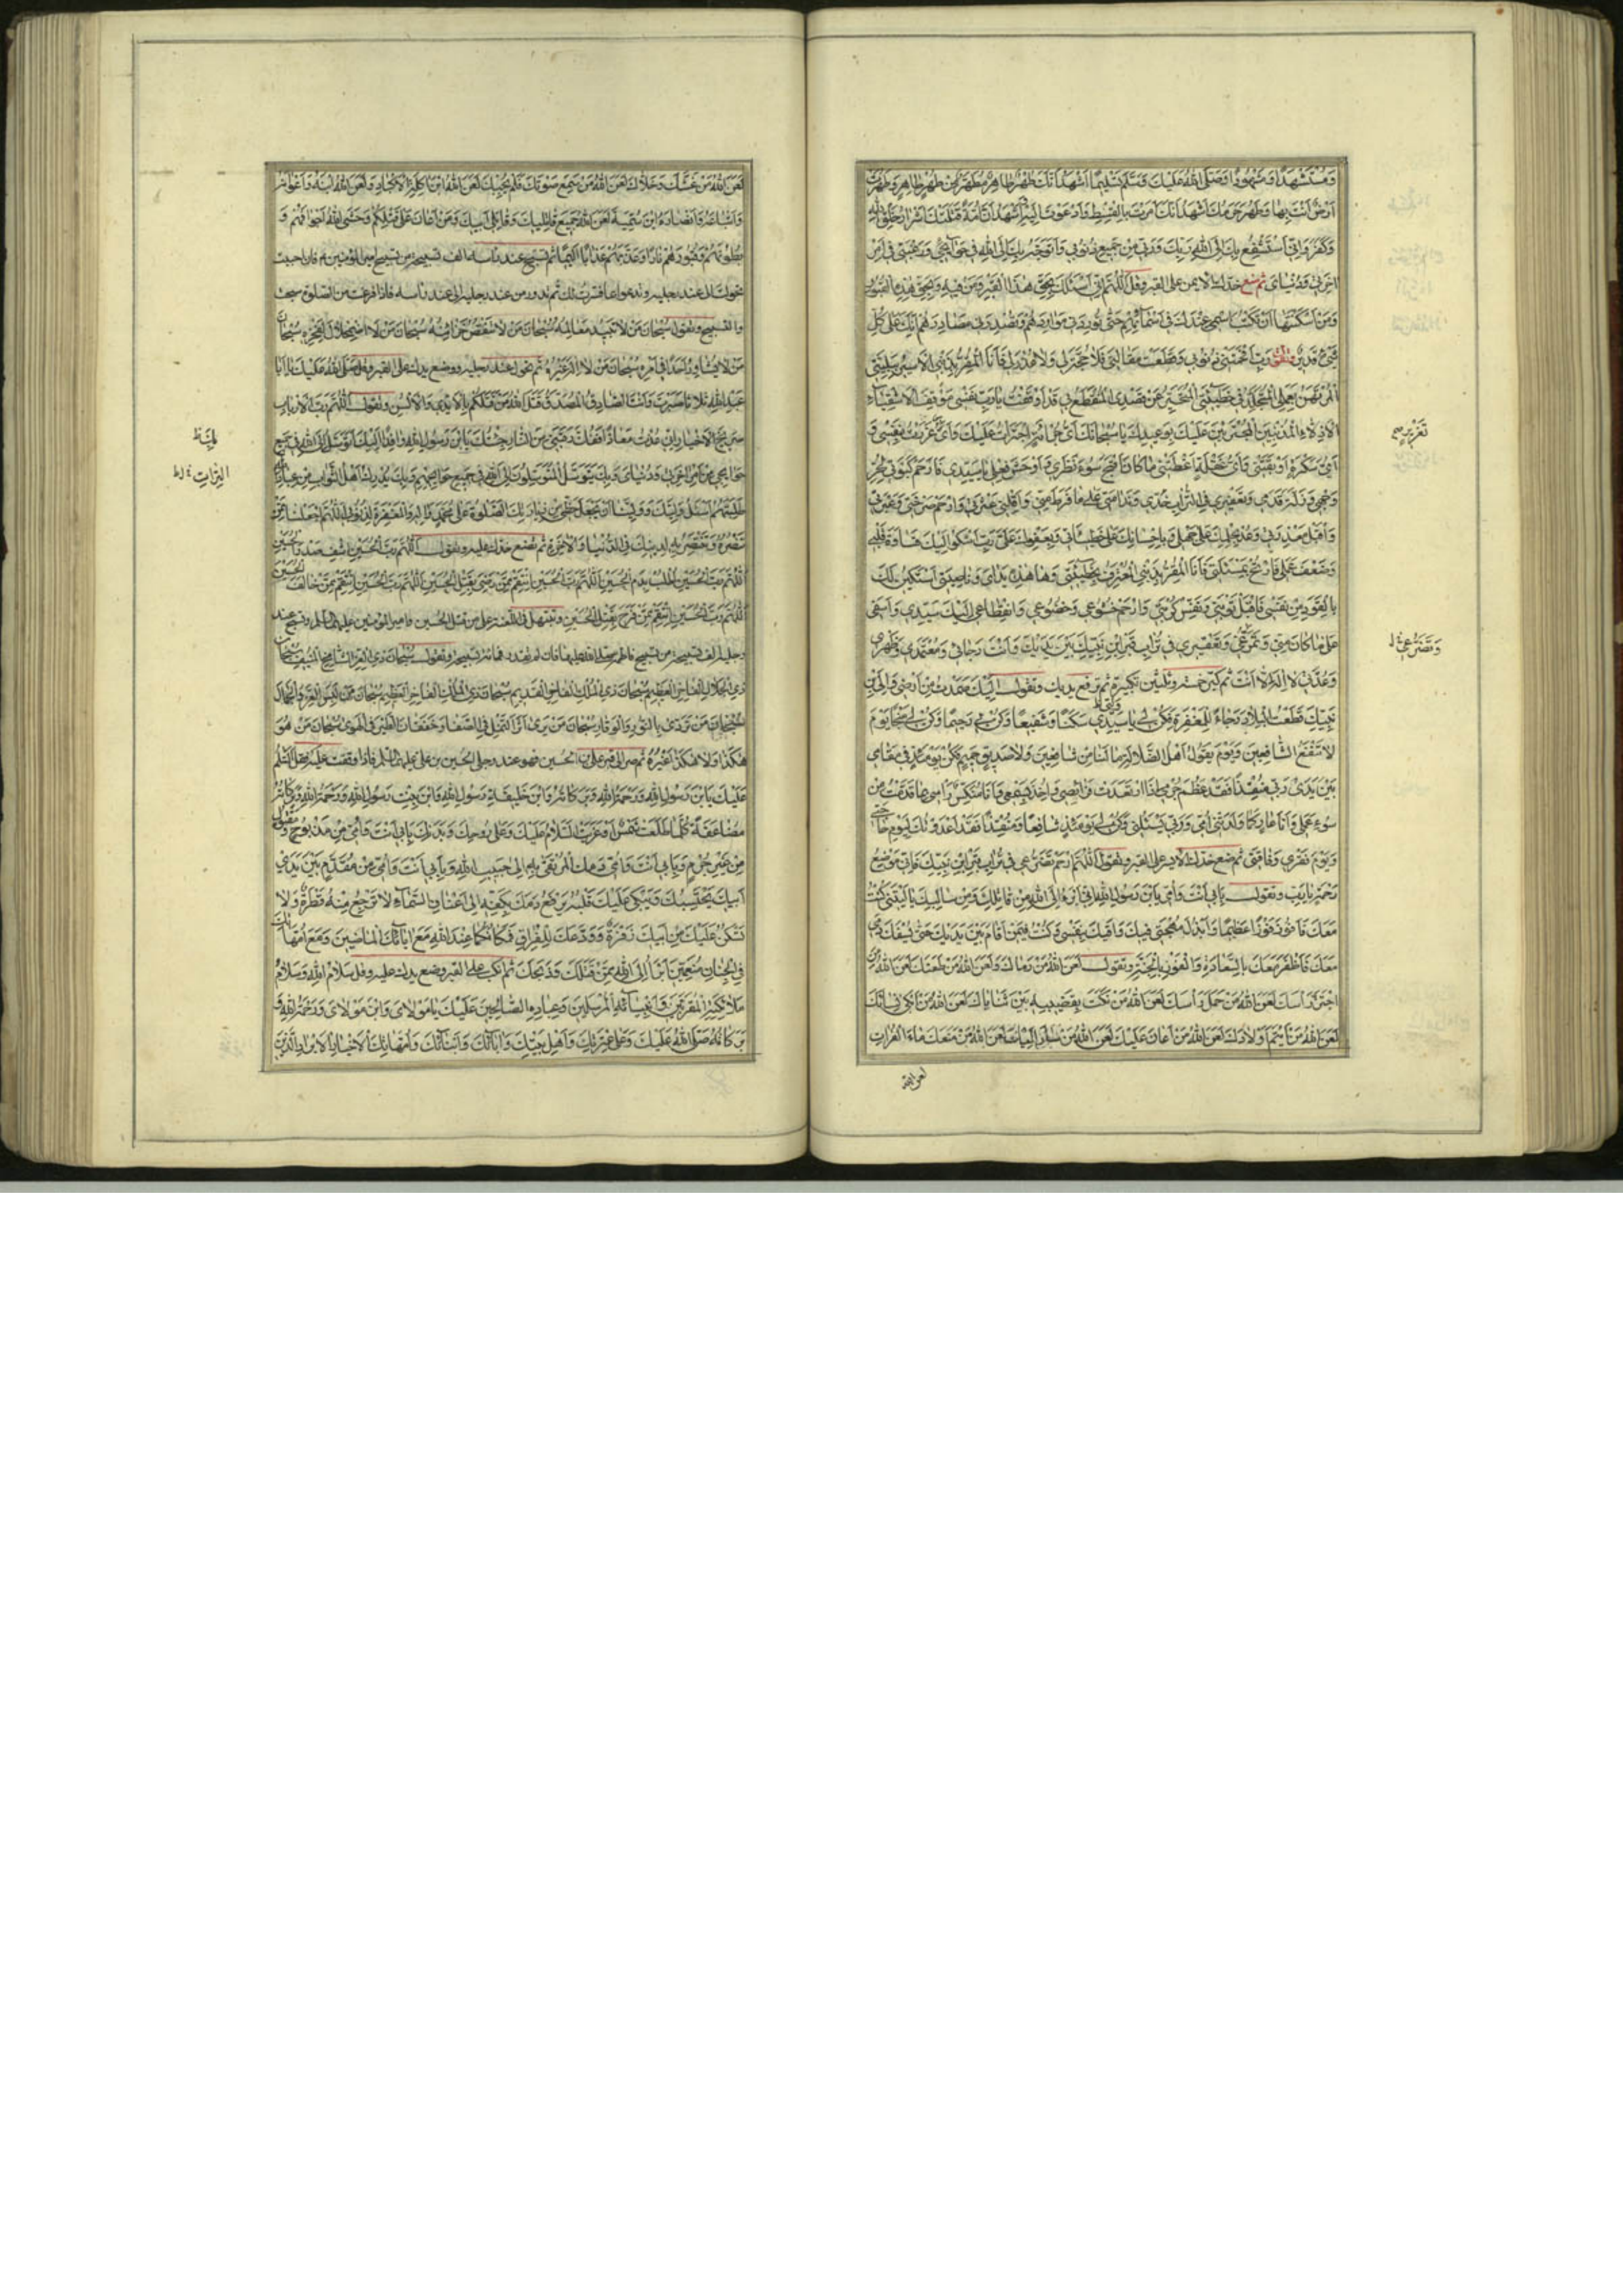 وَمُسْتَشْهَدًا وَمَشْهُودًا وَصَلَّى اللهُ عَلَيْكَ وَسَلَّمَ تَسْلِيمًا اَشْهَدُ اَنَّكَ طُهْرٌ طَاهِرٌ مُطَهَّرٌ مِنْ طُهْرٍ طَاهِرٍ مُطَهَّرٍ وَطَهُرَتْ
اَرْضٌ اَنْتَ بِهَا وَطَهُرَ حَرَمُكَ اَشْهَدُ اَنَّكَ اَمَرْتَ بِالْقِسْطِ وَدَعَوْتَ اِلَيْهِ وَاَشْهَدُ اَنَّ اُمَّةً قَتَلَتْكَ اَشْرَارُ خَلْقِ اللهِ
وَكَفَرَةٌ وَاِنِّي اَسْتَشْفِعُ بِكَ اِلَى اللهِ رَبِّكَ وَرَبِّي مِنْ جَمِيعِ ذُنُوبِي وَاَتَوَجَّهُ بِكَ اِلَى اللهِ فِي حَوَائِجِي وَرَغْبَتِي فِي اَمْرِ
اٰخِرَتِي وَدُنْيَايَ ثم ضع خدك الايمن على القبر وقل اَللّٰهُمَّ اِنِّي اَسْئَلُكَ بِحَقِّ هٰذَا الْقَبْرِ وَمَنْ فِيهِ وَبِحَقِّ هٰذِهِ الْقُبُورِ
وَمَنْ اَسْكَنْتَهَا اَنْ تَكْتُبَ اسْمِي عِنْدَكَ فِي اَسْمَائِهِمْ حَتّٰى تُورِدَنِي مَوَارِدَهُمْ وَتُصْدِرَنِي مَصَادِرَهُمْ اِنَّكَ عَلٰى كُلِّ
شَيْءٍ قَدِيرٌ وتقول رَبِّ اَفْحَمَتْنِي ذُنُوبِي وَقَطَعَتْ مَقَالَتِي فَلَا حُجَّةَ لِي وَلَا عُذْرَ لِي فَاَنَا الْمُقِرُّ بِذَنْبِي الْاَسِيرُ بِبَلِيَّتِي
الْمُرْتَهَنُ بِعَمَلِي الْمُتَجَلِّدُ فِي خَطِيئَتِي الْمُتَحَيِّرُ عَنْ قَصْدِي الْمُنْقَطَعُ بِي قَدْ اَوْقَفْتُ يَا رَبِّ نَفْسِي مَوْقِفَ الْاَشْقِيَاءِ
الْاَذِلَّاءِ الْمُذْنِبِينَ الْمُجْتَرِئِينَ عَلَيْكَ بِوَعِيدِكَ يَا سُبْحَانَكَ اَيَّ جُرْأَةٍ اجْتَرَأْتُ عَلَيْكَ وَاَيَّ تَغْرِيرٍ غَرَّرْتُ بِنَفْسِي وَ
اَيُّ سَكْرَةٍ اَوْبَقَتْنِي وَاَيُّ غَفْلَةٍ اَعْطَبَتْنِي مَا كَانَ اَقْبَحَ سُوءَ نَظَرِي وَاَوْحَشَ فِعْلِي يَا سَيِّدِي فَارْحَمْ كَبْوَتِي لِحُرِّ
وَجْهِي وَزَلَّةَ قَدَمِي وَتَعْفِيرِي فِي التُّرَابِ خَدِّي وَنَدَامَتِي عَلٰى مَا فَرَطَ مِنِّي وَاَقِلْنِي عَثْرَتِي وَارْحَمْ صَرْخَتِي وَعَبْرَتِي
وَاقْبَلْ مَعْذِرَتِي وَعُدْ بِحِلْمِكَ عَلٰى جَهْلِي وَبِاِحْسَانِكَ عَلٰى خَطِيئَاتِي وَبِعَفْوِكَ عَلَيَّ رَبِّ اَشْكُوا اِلَيْكَ قَسَاوَةَ قَلْبِي
وَضَعْفَ عَمَلِي فَارْتَحْ بِمَسْئَلَتِي فَاَنَا الْمُقِرُّ بِذَنْبِي الْمُعْتَرِفُ بِخَطِيئَتِي وَهٰذِهِ يَدَايَ وَنَاصِيَتِي اَسْتَكِينُ لَكَ
بِالْقَوَدِ مِنْ نَفْسِي فَاقْبَلْ تَوْبَتِي وَنَفِّسْ كُرْبَتِي وَارْحَمْ خُشُوعِي وَخُضُوعِي وَانْقِطَاعِي اِلَيْكَ سَيِّدِي وَاَسَفِي
عَلٰى مَا كَانَ مِنِّي وَتَمَرُّغِي وَتَعْفِيرِي فِي تُرَابِ قَبْرِ ابْنِ نَبِيِّكَ بَيْنَ يَدَيْكَ وَاَنْتَ رَجَائِي وَمُعْتَمَدِي وَظَهْرِي
وَعُدَّتِي لَا اِلٰهَ اِلَّا اَنْتَ ثم كبر خمسا وثلثين تكبيرة ثم ترفع يديك وتقول اِلَيْكَ صَمَدْتُ مِنْ اَرْضِي وَاِلَى ابْنِ
نَبِيِّكَ قَطَعْتُ الْبِلَادَ رَجَاءً لِلْمَغْفِرَةِ فَكُنْ لِي يَا سَيِّدِي سَكَنًا وَشَفِيعًا وَكُنْ بِي رَحِيمًا وَكُنْ لِي مَنْجًا يَوْمَ
لَا تَنْفَعُ الشَّافِعِينَ وَيَوْمَ يَقُولُ اَهْلُ الضَّلَالَةِ مَا لَنَا مِنْ شَافِعِينَ وَلَا صَدِيقٍ حَمِيمٍ فَكُنْ يَوْمَئِذٍ فِي مَقَامِي
بَيْنَ يَدَيْ رَبِّي مُنْقِذًا فَقَدْ عَظُمَ جُرْمِي اِذَا ارْتَعَدَتْ فَرَائِصِي وَاُخِذَ بِسَمْعِي وَاَنَا مُنَكِّسٌ رَاْسِي بِمَا قَدَّمْتُ مِنْ
سُوءِ عَمَلِي وَاَنَا عَارٍ كَمَا وَلَدَتْنِي اُمِّي وَرَبِّي يَسْئَلُنِي فَكُنْ لِي يَوْمَئِذٍ شَافِعًا وَمُنْقِذًا فَقَدْ اَعْدَدْتُكَ لِيَوْمِ حَاجَتِي
وَيَوْمِ فَقْرِي وَفَاقَتِي ثم ضع خدك الايسر على القبر وتقول اَللّٰهُمَّ ارْحَمْ تَضَرُّعِي فِي تُرَابِ قَبْرِ ابْنِ نَبِيِّكَ فَاِنِّي مَوْضِعُ
رَحْمَةٍ يَا رَبِّ وتقول بِاَبِي اَنْتَ وَاُمِّي يَا بْنَ رَسُولِ اللهِ اِنِّي اَبْرَءُ اِلَى اللهِ مِنْ قَاتِلِكَ وَمِنْ سَالِبِكَ يَا لَيْتَنِي كُنْتُ
مَعَكَ فَاَفُوزَ فَوْزًا عَظِيمًا وَاَبْذُلَ مُهْجَتِي فِيكَ وَاَقِيكَ بِنَفْسِي وَكُنْتُ فِيمَنْ اَقَامَ بَيْنَ يَدَيْكَ حَتّٰى يُسْفَكَ دَمِي
مَعَكَ فَاَظْفَرَ مَعَكَ بِالسَّعَادَةِ وَالْفَوْزِ بِالْجَنَّةِ وتقول لَعَنَ اللهُ مَنْ رَمَاكَ وَلَعَنَ اللهُ مَنْ طَعَنَكَ لَعَنَ اللهُ مَنِ
اجْتَزَّ رَاْسَكَ لَعَنَ اللهُ مَنْ حَمَلَ رَاْسَكَ لَعَنَ اللهُ مَنْ نَكَتَ بِقَضِيبِهِ بَيْنَ ثَنَايَاكَ لَعَنَ اللهُ مَنْ اَبْكٰى نِسَائَكَ
لَعَنَ اللهُ مَنْ اَيْتَمَ اَوْلَادَكَ لَعَنَ اللهُ مَنْ اَعَانَ عَلَيْكَ لَعَنَ اللهُ مَنْ سَارَ اِلَيْكَ لَعَنَ اللهُ مَنْ مَنَعَكَ مَاءَ الْفُرَاتِ
لعن الله
لَعَنَ اللهُ مَنْ غَشَّكَ وَخَلَّاكَ لَعَنَ اللهُ مَنْ سَمِعَ صَوْتَكَ فَلَمْ يُجِبْكَ لَعَنَ اللهُ ابْنَ اٰكِلَةِ الْاَكْبَادِ وَلَعَنَ اللهُ ابْنَهُ وَاَعْوَانَهُ
وَاَتْبَاعَهُ وَاَنْصَارَهُ وَابْنَ سُمَيَّةَ لَعَنَ اللهُ جَمِيعَ قَاتِلِيكَ وَقَاتِلِي اَبِيكَ وَمَنْ اَعَانَ عَلٰى قَتْلِكُمْ وَحَشَى اللهُ اَجْوَافَهُمْ وَ
بُطُونَهُمْ وَقُبُورَهُمْ نَارًا وَعَذَّبَهُمْ عَذَابًا اَلِيمًا ثم تسبح عند راسه الف تسبيحة من تسبيح امير المؤمنين فان احببت
تحولت الى عند رجليه وتدعوا بما فسرت لك ثم تدور من عند رجليه الى عند راسه فاذا فرغت من الصلوة سبحت
والتسبيح وتقول سُبْحَانَ مَنْ لَا تَبِيدُ مَعَالِمُهُ سُبْحَانَ مَنْ لَا تَنْقُصُ خَزَائِنُهُ سُبْحَانَ مَنْ لَا اضْمِحْلَالَ لِفَخْرِهِ سُبْحَانَ
مَنْ لَا يُشَاوِرُ اَحَدًا فِي اَمْرِهِ سُبْحَانَ مَنْ لَا اِلٰهَ غَيْرُهُ ثم تحول عند رجليه وضع يدك على القبر وقل صَلَّى اللهُ عَلَيْكَ يَا اَبَا
عَبْدِ اللهِ ثلاثا صَبَرْتَ وَاَنْتَ الصَّادِقُ الْمُصَدَّقُ قَتَلَ اللهُ مَنْ قَتَلَكُمْ بِالْاَيْدِي وَالْاَلْسُنِ وتقول اَللّٰهُمَّ رَبَّ الْاَرْبَابِ
صَرِيخَ الْاَخْيَارِ اِنِّي عُذْتُ مَعَاذًا فَفُكَّ رَقَبَتِي مِنَ النَّارِ جِئْتُكَ يَا بْنَ رَسُولِ اللهِ وَافِدًا اِلَيْكَ اَتَوَسَّلُ اِلَى اللهِ فِي جَمِيعِ
حَوَائِجِي مِنْ اَمْرِ اٰخِرَتِي وَدُنْيَايَ وَبِكَ يَتَوَسَّلُ الْمُتَوَسِّلُونَ اِلَى اللهِ فِي جَمِيعِ حَوَائِجِهِمْ وَبِكَ يُدْرِكُ اَهْلُ الثَّوَابِ مِنْ عِبَادِ اللهِ
طَلِبَتَهُمْ اَسْئَلُ وَلِيَّكَ وَوَلِيَّنَا اَنْ يَجْعَلَ حَظِّي مِنْ زِيَارَتِكَ الصَّلٰوةَ عَلٰى مُحَمَّدٍ وَاٰلِهِ وَالْمَغْفِرَةَ لِذُنُوبِي اَللّٰهُمَّ اجْعَلْنَا مِمَّنْ
تَنْصُرُهُ وَتَنْتَصِرُ بِهِ لِدِينِكَ فِي الدُّنْيَا وَالْاٰخِرَةِ ثم تضع خدك عليه وتقول اَللّٰهُمَّ رَبَّ الْحُسَيْنِ اشْفِ صَدْرَ الْحُسَيْنِ
اَللّٰهُمَّ رَبَّ الْحُسَيْنِ اُطْلُبْ بِدَمِ الْحُسَيْنِ اَللّٰهُمَّ رَبَّ الْحُسَيْنِ انْتَقِمْ مِمَّنْ رَضِيَ بِقَتْلِ الْحُسَيْنِ اَللّٰهُمَّ رَبَّ الْحُسَيْنِ انْتَقِمْ مِمَّنْ خَالَفَ الْحُسَيْنَ
اَللّٰهُمَّ رَبَّ الْحُسَيْنِ انْتَقِمْ مِمَّنْ فَرِحَ بِقَتْلِ الْحُسَيْنِ وتبتهل في اللعنة على من قتل الحسين وامير المؤمنين عليهما السلم وتسبح عند
رجليه الف تسبيحة من تسبيح فاطمة فان لم تقدر فمائة تسبيحة وتقول سُبْحَانَ ذِي الْعِزِّ الشَّامِخِ الْمُنِيفِ سُبْحَانَ
ذِي الْجَلَالِ الْفَاخِرِ الْعَظِيمِ سُبْحَانَ ذِي الْمُلْكِ الْفَاخِرِ الْقَدِيمِ سُبْحَانَ ذِي الْمُلْكِ الْفَاخِرِ الْعَظِيمِ سُبْحَانَ مَنْ لَبِسَ الْعِزَّ وَالْجَمَالَ
سُبْحَانَ مَنْ تَرَدّٰى بِالنُّورِ وَالْوَقَارِ سُبْحَانَ مَنْ يَرٰى اَثَرَ النَّمْلِ فِي الصَّفَا وَخَفَقَانَ الطَّيْرِ فِي الْهَوٰى سُبْحَانَ مَنْ هُوَ
هٰكَذَا وَلَا هٰكَذَا غَيْرُهُ ثم صر الى قبر علي بن الحسين فهو عند رجلي الحسين بن علي عليهما السلم فاذا وقفت عليه فقل السَّلٰمُ
عَلَيْكَ يَا بْنَ رَسُولِ اللهِ وَرَحْمَةُ اللهِ وَبَرَكَاتُهُ وَابْنَ خَلِيفَةِ رَسُولِ اللهِ وَابْنَ بِنْتِ رَسُولِ اللهِ وَرَحْمَةُ اللهِ وَبَرَكَاتُهُ
مُضَاعَفَةً كُلَّمَا طَلَعَتْ شَمْسٌ اَوْ غَرَبَتْ السَّلَامُ عَلَيْكَ وَعَلٰى رُوحِكَ وَبَدَنِكَ بِاَبِي اَنْتَ وَاُمِّي مِنْ مَذْبُوحٍ وَمَقْتُولٍ
مِنْ غَيْرِ جُرْمٍ وَبِاَبِي اَنْتَ وَاُمِّي دَمُكَ الْمُرْتَقٰى بِهِ اِلٰى حَبِيبِ اللهِ وَبِاَبِي اَنْتَ وَاُمِّي مِنْ مُقَدَّمٍ بَيْنَ يَدَيْ
اَبِيكَ يَحْتَسِبُكَ وَيَبْكِي عَلَيْكَ مُحْتَرِقًا عَلَيْكَ قَلْبُهُ يَرْفَعُ دَمَكَ بِكَفِّهِ اِلٰى اَعْنَانِ السَّمَاءِ لَا تَرْجِعُ مِنْهُ قَطْرَةٌ وَلَا
تَسْكُنُ عَلَيْكَ مِنْ اَبِيكَ زَفْرَةٌ وَوَدَّعَكَ لِلْفِرَاقِ فَمَكَانُكُمَا عِنْدَ اللهِ مَعَ اٰبَائِكَ الْمَاضِينَ وَمَعَ اُمَّهَاتِكَ
فِي الْجِنَانِ مُنَعَّمِينَ اَبْرَأُ اِلَى اللهِ مِمَّنْ قَتَلَكَ وَذَبَحَكَ ثم انكب على القبر وضع يدك عليه وقل سَلَامُ اللهِ وَسَلَامُ
مَلَائِكَتِهِ الْمُقَرَّبِينَ وَاَنْبِيَائِهِ الْمُرْسَلِينَ وَعِبَادِهِ الصَّالِحِينَ عَلَيْكَ يَا مَوْلَايَ وَابْنَ مَوْلَايَ وَرَحْمَةُ اللهِ وَ
بَرَكَاتُهُ صَلَّى اللهُ عَلَيْكَ وَعَلٰى عِتْرَتِكَ وَاَهْلِ بَيْتِكَ وَاٰبَائِكَ وَاَبْنَائِكَ وَاُمَّهَاتِكَ الْاَخْيَارِ الْاَبْرَارِ الَّذِينَ